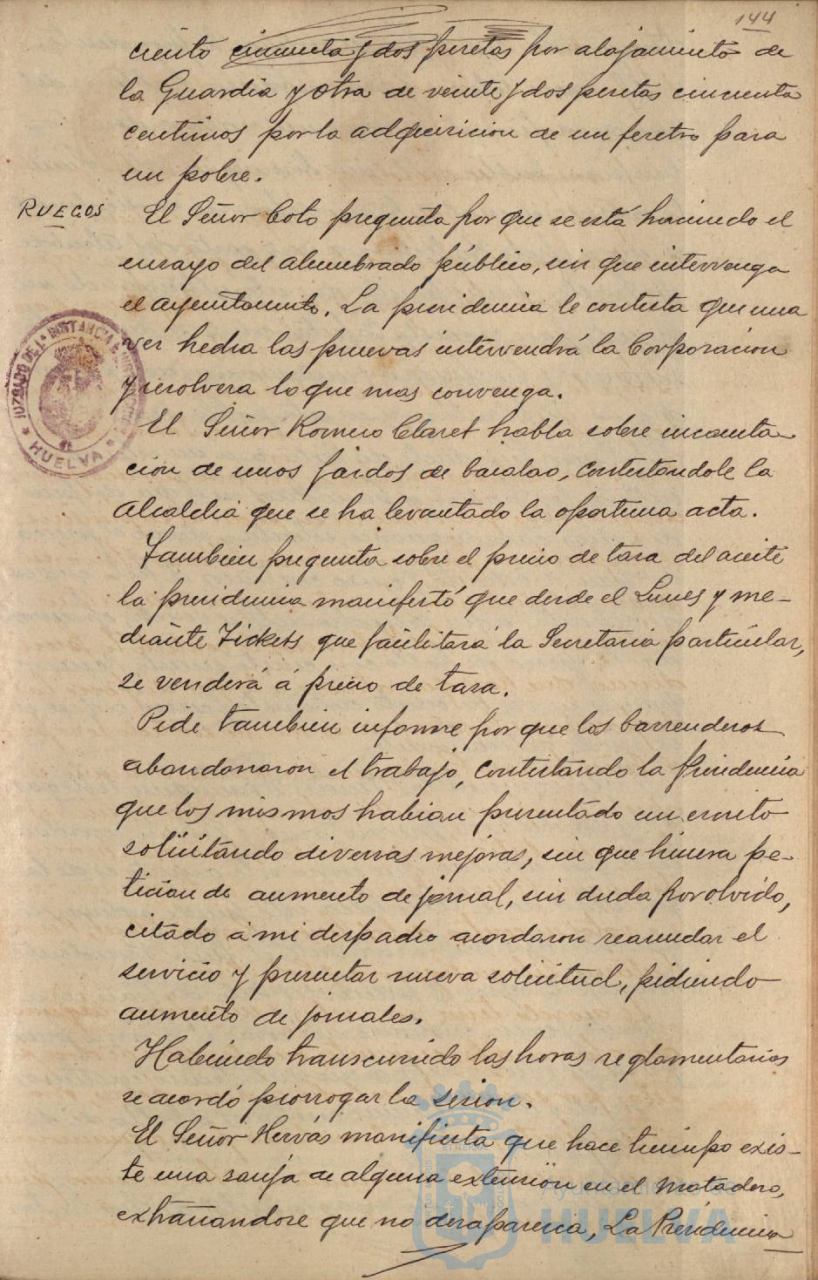 144
ciento cincuenta y dos pesetas por alojamiento de
la Guardia y otra de veinte y dos pesetas cincuenta
centimos por la adquisicion de un feretro para
un pobre.
RUEGOS
El Señor Coto pregunta por que se está haciendo el
ensayo del alumbrado público, sin que intervenga
el ayuntamiento. La presidencia le contesta que una
vez hecha las pruevas intervendrá la Corporacion
y resolvera lo que mas convenga.
El Señor Romero Claret habla sobre incauta
cion de unos fardos de bacalao, contestandole la
Alcaldia que se ha levantado la oportuna acta.
Tambien pregunta sobre el precio de tasa del aceite
la presidencia manifestó que desde el Lunes y me-
diante Tickets que facilitará la Secretaria particular,
se venderá á precio de tasa.
Pide tambien informe por que los barrenderos
abandonaron el trabajo, contestando la presidencia
que los mismos habian presentado un escrito
solicitando diversas mejoras, sin que hiciera pe-
ticion de aumento de jornal, sin duda por olvido,
citado á mi despacho acordaron reanudar el
servicio y presentar nueva solicitud, pidiendo
aumento de jornales.
Habiendo transcurrido las horas reglamentarias
se acordó prorrogar la sesion.
El Señor Hervás manifiesta que hace tiempo exis-
te una sanja de alguna extension en el Matadero,
extrañandose que no desaparesca, La Presidencia
JUZGADO DE 1ª INSTANCIA E
HUELVA
Ayuntamiento de
HUELVA